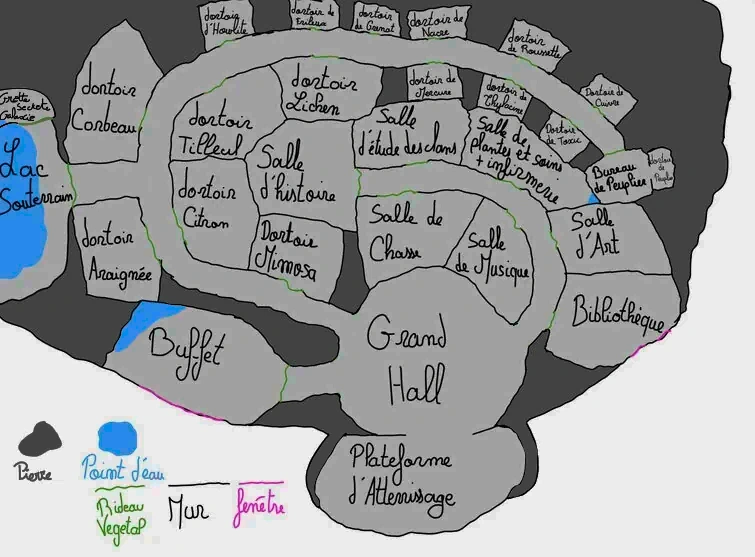 dortoir
d'Howlite
dortoir de
dortoir
de Grenat
dortoir de
Nacre
dortoir
de Roussette
Dortoir de
Cuivre
Grotte
Secrète
Galaxie
dortoir
Corbeau
dortoir
Lichen
dortoir de
Mercure
dortoir de
Thylacine
Dortoir
de Toxic
dortoir
Tilleul
Salle
d'étude des clans
Salle de
plantes et soins
+ infirmerie
Bureau
de Peuplier
dortoir
de
Lac
Souterrain
Salle
d'histoire
dortoir
Citron
Dortoir
Mimosa
Salle de
Chasse
Salle
de Musique
Salle
d'Art
dortoir
Araignée
Bibliothèque
Buffet
Grand
Hall
Plateforme
d'Atterrissage
Pierre
Point d'eau
Rideau
Vegetal
Mur
fenêtre